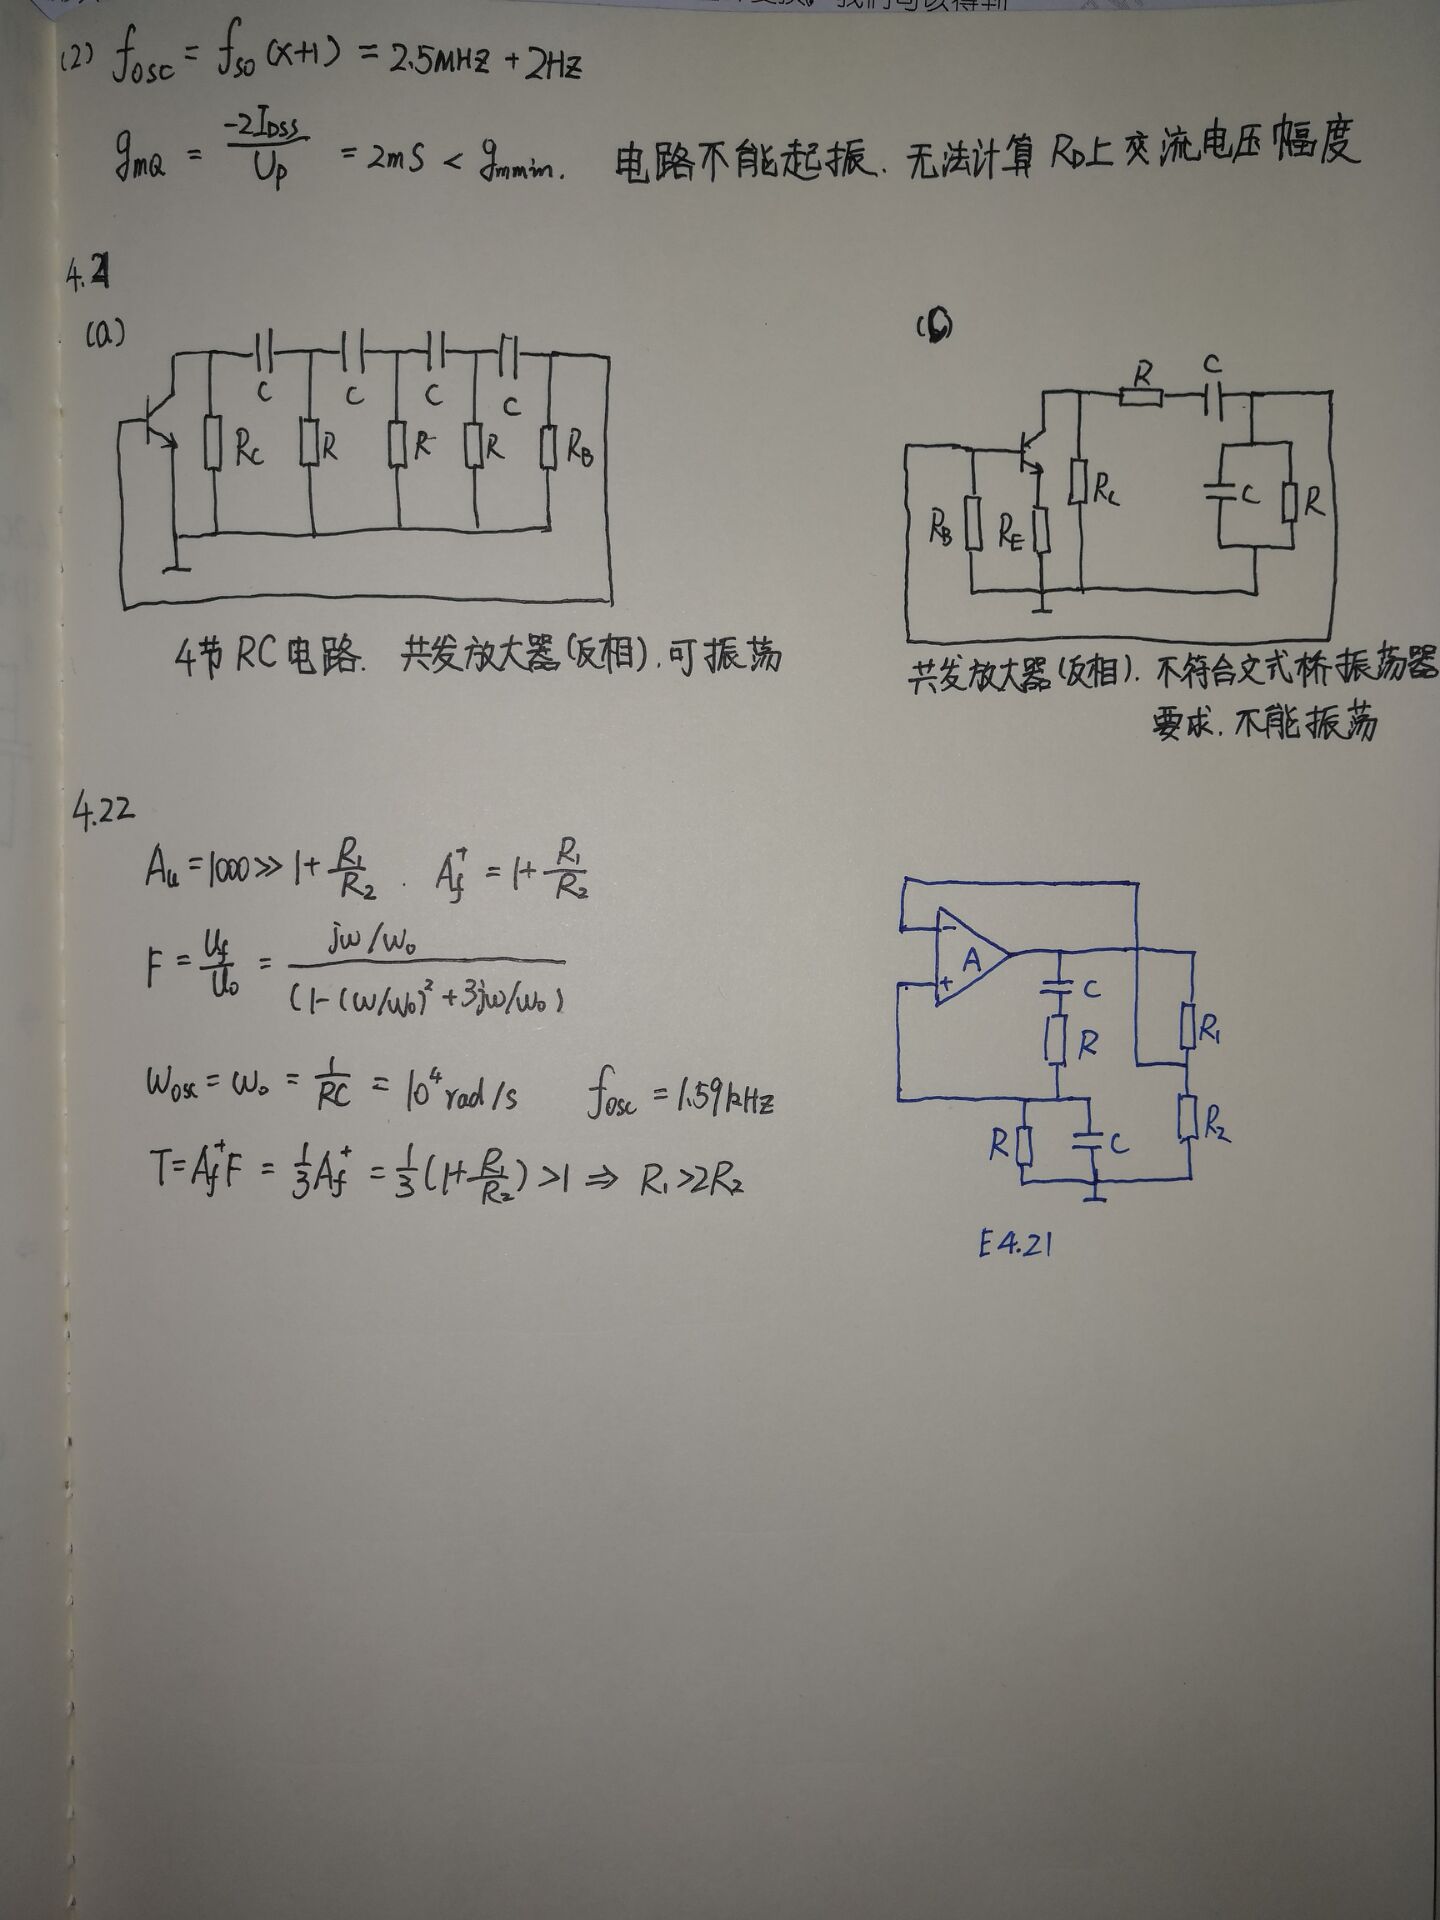 我们可以得到
(2) fosc = fso (x+1) = 2.5MHz + 2Hz
gmQ = -2IDSS / UP = 2mS < gmmin. 电路不能起振. 无法计算 RD上交流电压幅度
4.21
(a)
C C C C
RC R R R RB
4节RC电路. 共发放大器(反相).可振荡
R C
RB RE RC C R
共发放大器(反相). 不符合文式桥振荡器
要求. 不能振荡
4.22
Au = 1000 >> 1 + R1/R2 . Af+ = 1 + R1/R2
F = Uf/Uo = jω/ω0 / (1-(ω/ω0)² + 3jω/ω0)
ωosc = ω0 = 1/RC = 10⁴ rad/s fosc = 1.59kHz
T = Af+F = 1/3 Af+ = 1/3 (1 + R1/R2) > 1 ⇒ R1 > 2R2
-
A
+
C
R
R1
R C
R2
E4.21